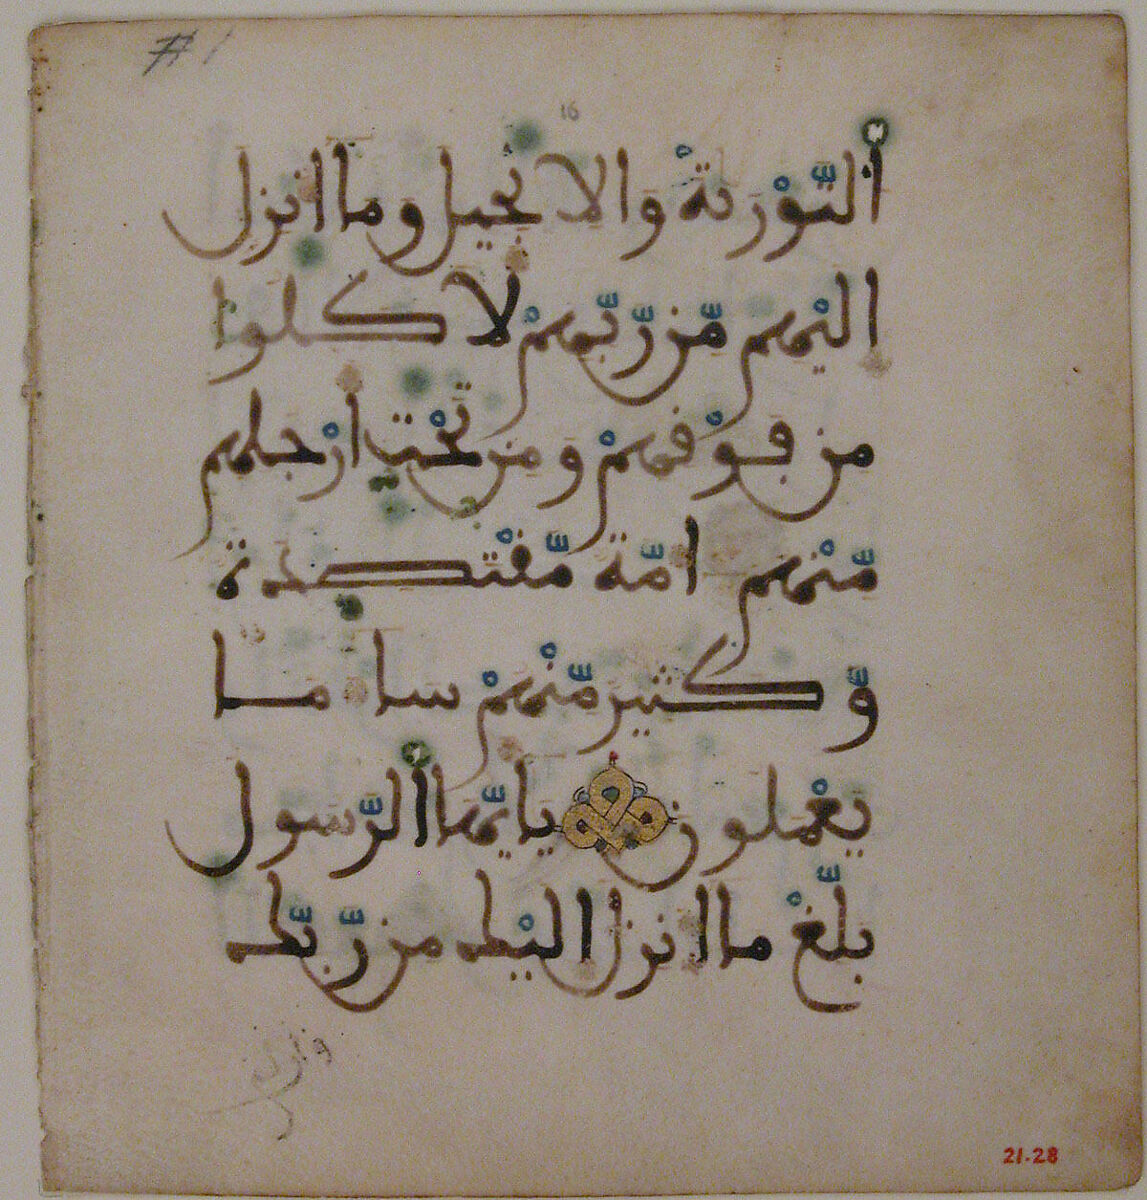 # 1
16
اَلتَّوْرَىٰةَ وَالِانجِيلَ وَمَا انزِلَ
إِلَيْهِم مِّن رَّبِّهِمْ لَاكَلُوا
مِن فَوْقِهِمْ وَمِن تَحْتِ أَرْجُلِهِم
مِّنْهُمُ امَّةٌ مُّقْتَصِدَةٌ
وَّكَثِيرٌ مِّنْهُمْ سَاءَ مَا
يَعْمَلُونَ يَاأَيُّهَا اَلرَّسُولُ
بَلِّغْ مَا انزِلَ إِلَيْكَ مِن رَّبِّكَ
21.28